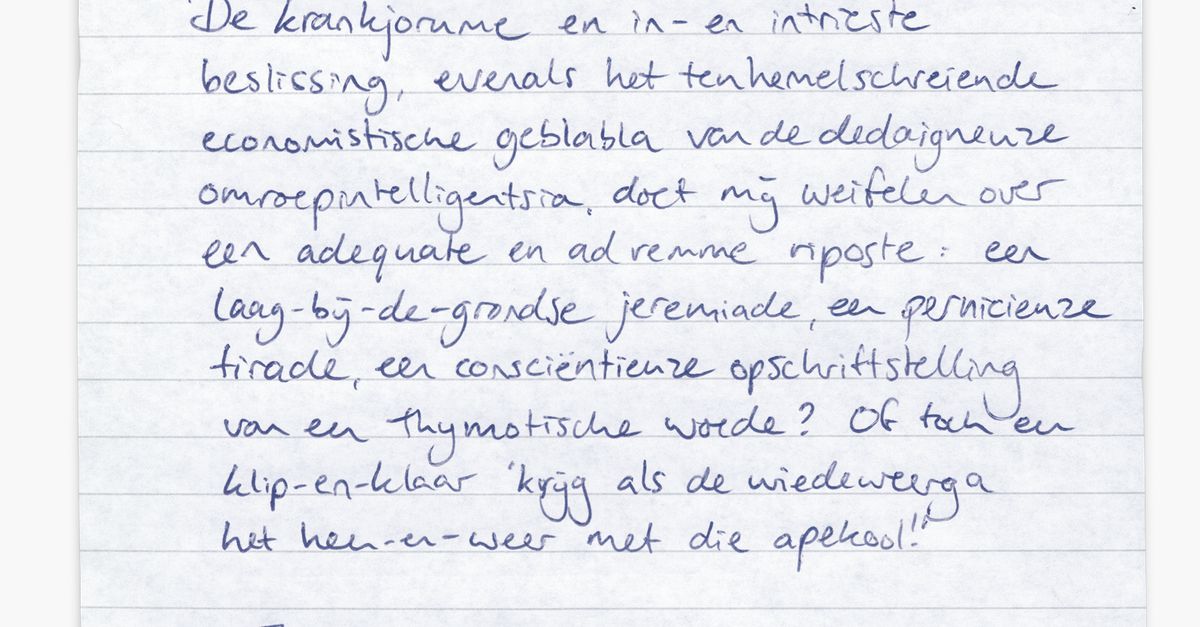 'De krankjorume en in- en intrieste
beslissing, evenals het tenhemelschreiende
economistische geblabla van de dedaigneuze
omroepintelligentsia, doet mij weifelen over
een adequate en ad remme riposte: een
laag-bij-de-grondse jeremiade, een pernicieuze
tirade, een consciëntieuze opschriftstelling
van een thymotische woede? Of toch een
klip-en-klaar 'krijg als de wiedeweerga
het heen-en-weer met die apekool!''